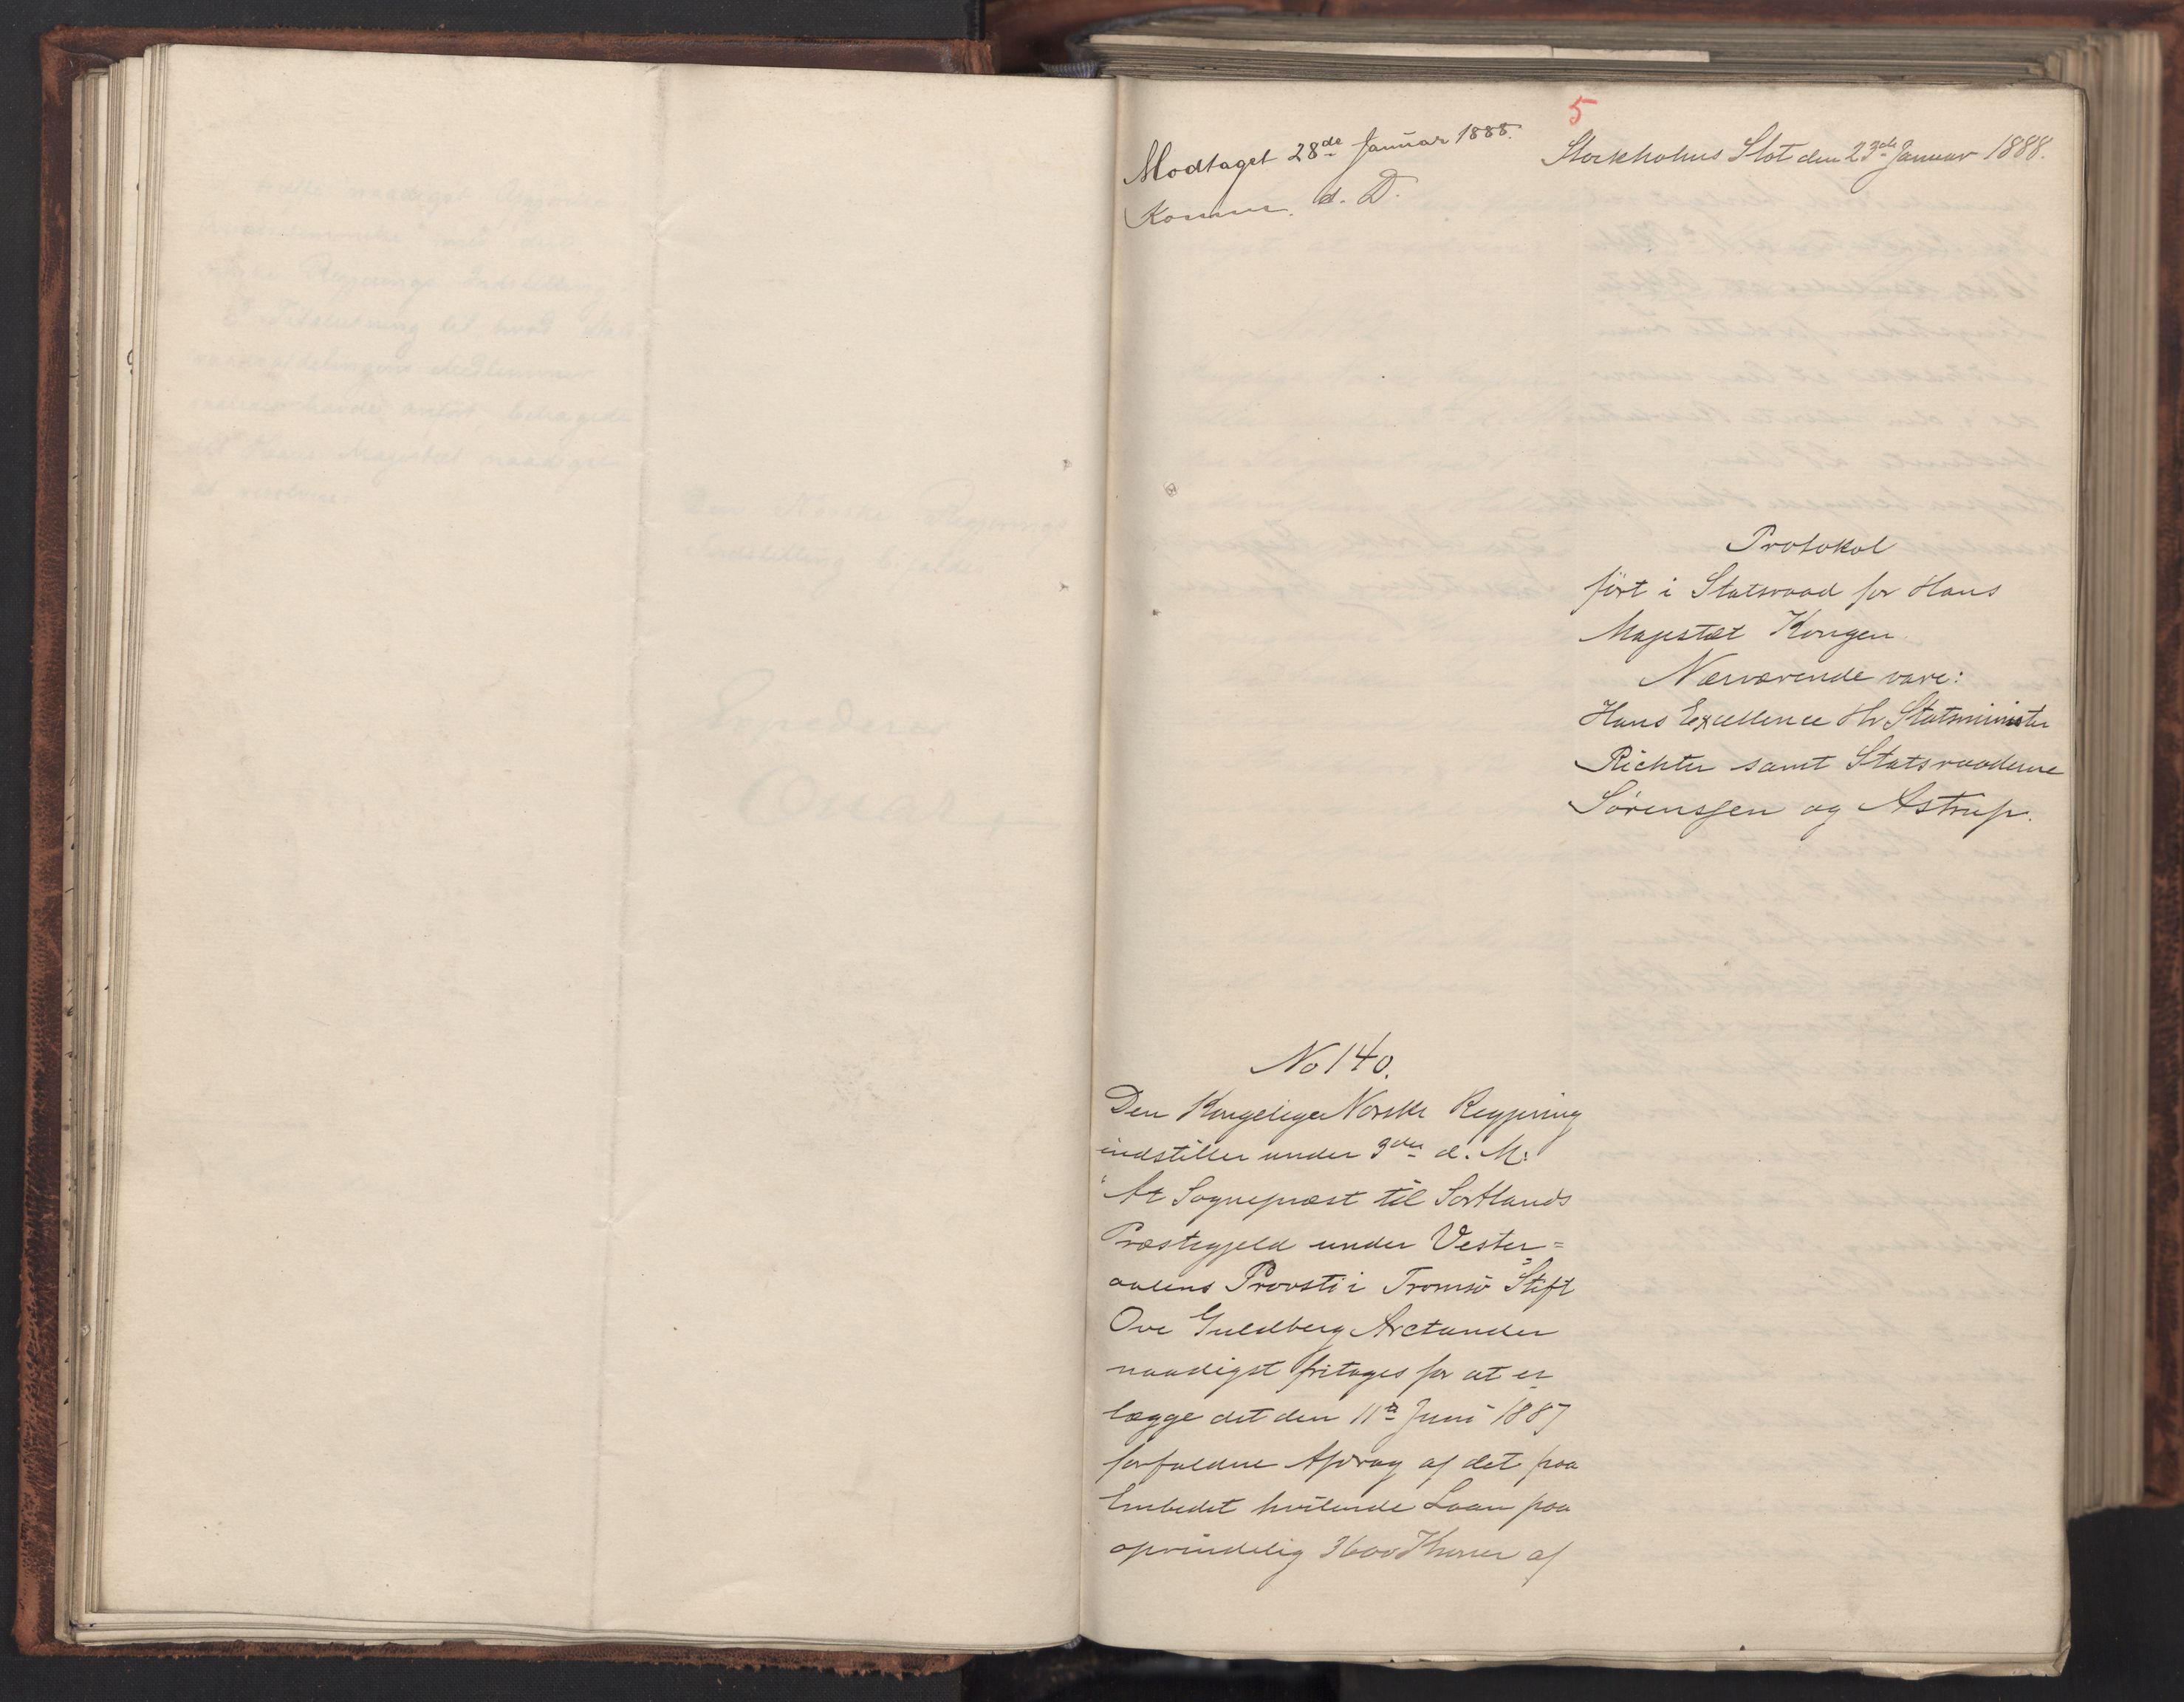 5
Modtaget 28de Januar 1888.
Komm. d. D.
Stockholms Slot den 23de Januar 1888.
Protokol
ført i Statsraad for Hans
Majestæt Kongen
Nærværende vare:
Hans Excellence Hr Statsminister
Richter samt Statsraaderne
Sørenssen og Astrup.
No 140.
Den Kongelige Norske Regjering
indstiller under 9de d. M:
"At Sognepræst til Sortlands
Præstegjeld under Vester=
aalens Provsti i Tromsø Stift
Ove Guldberg Arctander
naadigst fritages for at er
lægge det den 11te Juni 1887
forfaldne Afdrag af det paa
Embedet hvilende Laan paa
oprindelig 3600 Kroner af